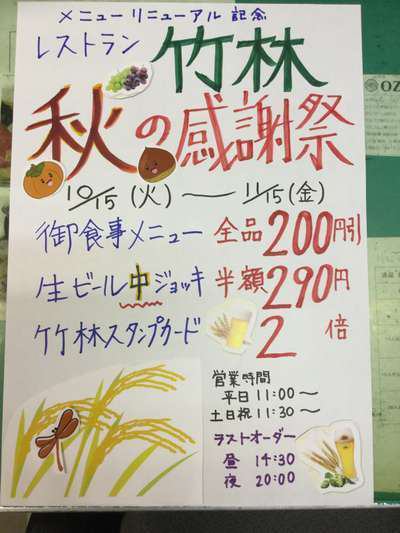 メニューリニューアル記念
レストラン 竹林
秋の感謝祭
10/15(火)〜11/15(金)
御食事メニュー 全品200円引
生ビール中ジョッキ 半額290円
竹林スタンプカード 2倍
営業時間
平日 11:00〜
土日祝 11:30〜
ラストオーダー
昼 14:30
夜 20:00
OZ